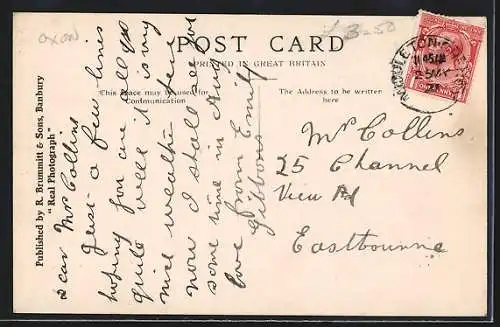 Oxon
£3-50
POST CARD
PRINTED IN GREAT BRITAIN
This space may be used for
Communication
The Address to be written
here
Published by R. Brummitt & Sons, Banbury
"Real Photograph"
Dear Mrs Collins
Just a few lines
hoping you are all
quite well it is very
nice weather here
now I shall see you
some time in Aug
love from Emily
Gibbons
Mrs Collins
25 Channel
View Rd
Eastbourne